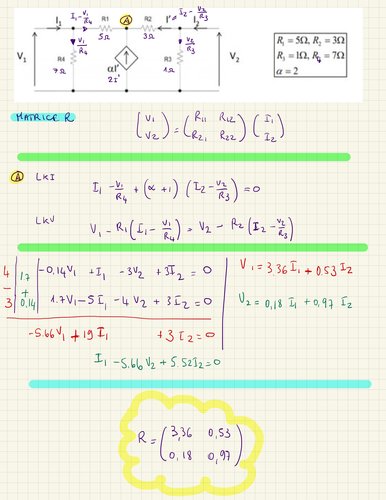 I₁ I₁-V₁/R₄ R1 A R2 I' = I₂-V₂/R₃ I₂
5Ω 3Ω
V₁ V₁/R₄ R4 7Ω αI' 2I' V₂/R₃ R3 1Ω V₂
R₁ = 5Ω, R₂ = 3Ω
R₃ = 1Ω, R₄ = 7Ω
α = 2
MATRICE R (V₁ V₂) = (R₁₁ R₁₂ R₂₁ R₂₂) (I₁ I₂)
A LKI I₁ - V₁/R₄ + (α+1) (I₂ - V₂/R₃) = 0
LKV V₁ - R₁(I₁ - V₁/R₄) = V₂ - R₂(I₂ - V₂/R₃)
4 1.7 -0.14V₁ + I₁ - 3V₂ + 3I₂ = 0
- +
3 0.14 1.7V₁ - 5I₁ - 4V₂ + 3I₂ = 0
-5.66V₁ + 19I₁ + 3I₂ = 0
I₁ - 5.66V₂ + 5.52I₂ = 0
V₁ = 3.36 I₁ + 0.53 I₂
V₂ = 0,18 I₁ + 0,97 I₂
R = (3,36 0,53 0,18 0,97)